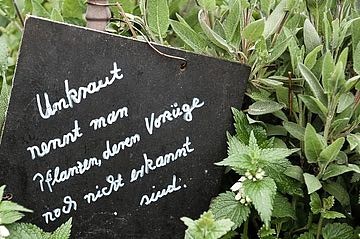 Unkraut
nennt man
Pflanzen, deren Vorzüge
noch nicht erkannt
sind.